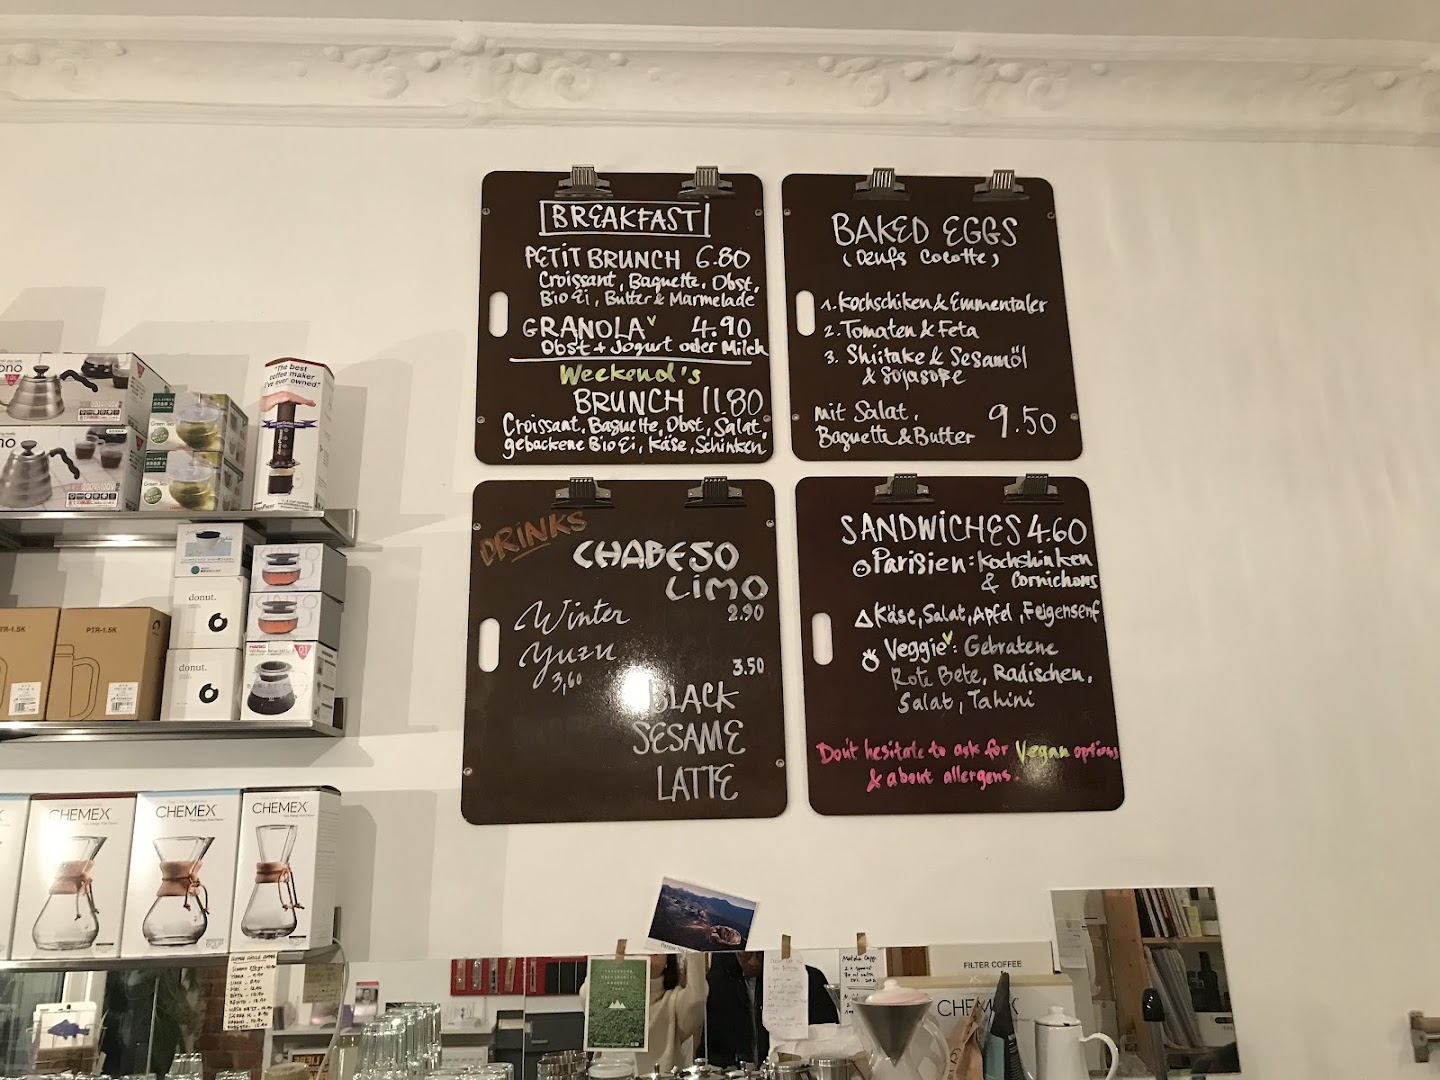 BREAKFAST
PETIT BRUNCH 6.80
Croissant, Baguette, Obst,
Bio Ei, Butter & Marmelade
GRANOLA V 4.90
Obst + Jogurt oder Milch
Weekend's
BRUNCH 11.80
Croissant, Baguette, Obst, Salat
gebackene Bio Ei, Käse, Schinken
BAKED EGGS
(Oeufs Cocotte)
1. Kochschiken & Emmentaler
2. Tomaten & Feta
3. Shiitake & Sesamöl
& Sojasoße
mit Salat,
Baguette & Butter 9.50
DRINKS
CHABESO
LIMO
2.90
Winter
Yuzu
3,60
3.50
BLACK
SESAME
LATTE
SANDWICHES 4.60
Parisien: Kochshinken
& Cornichons
Käse, Salat, Apfel, Feigensenf
Veggie V: Gebratene
Rote Bete, Radischen,
Salat, Tahini
Don't hesitate to ask for Vegan options
& about allergens.
"The best
coffee maker
I've ever owned."
PTR-1.5K
PTR-1.5K
donut.
donut.
KINTO
KINTO
HARIO
01
CHEMEX
CHEMEX
CHEMEX
FILTER COFFEE
CHEMEX